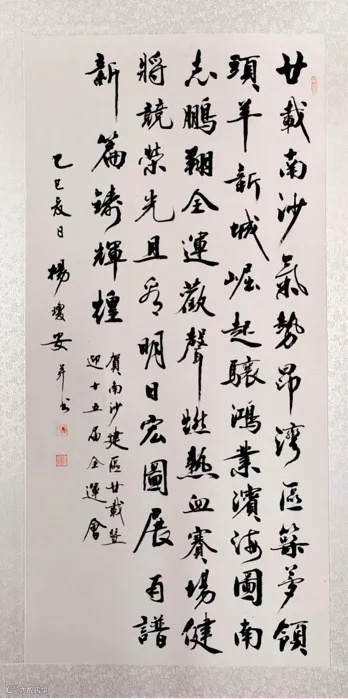 廿載南沙氣勢昂灣區築夢領
頭羊新城崛起驤鴻業濱海圖南
志鵬翔全運歡聲燃熱血賽場健
將競榮光且看明日宏圖展再譜
新篇鑄輝煌
賀南沙建區廿載暨
迎十五届全運會
乙巳友日楊瓊安并书